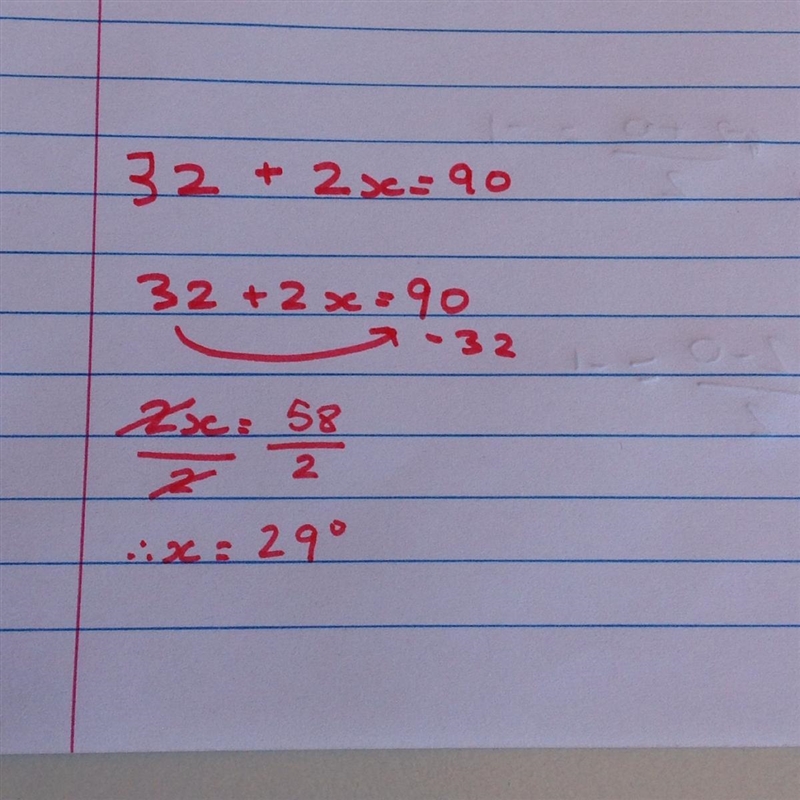 32 + 2x = 90
32 + 2x = 90
- 32
2x/2 = 58/2
∴ x = 29°